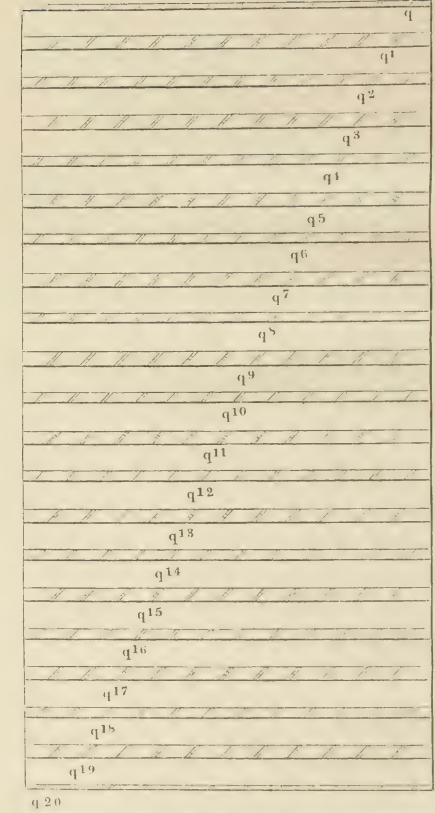 q
q1
q2
q3
q4
q5
q6
q7
q8
q9
q10
q11
q12
q13
q14
q15
q16
q17
q18
q19
q20